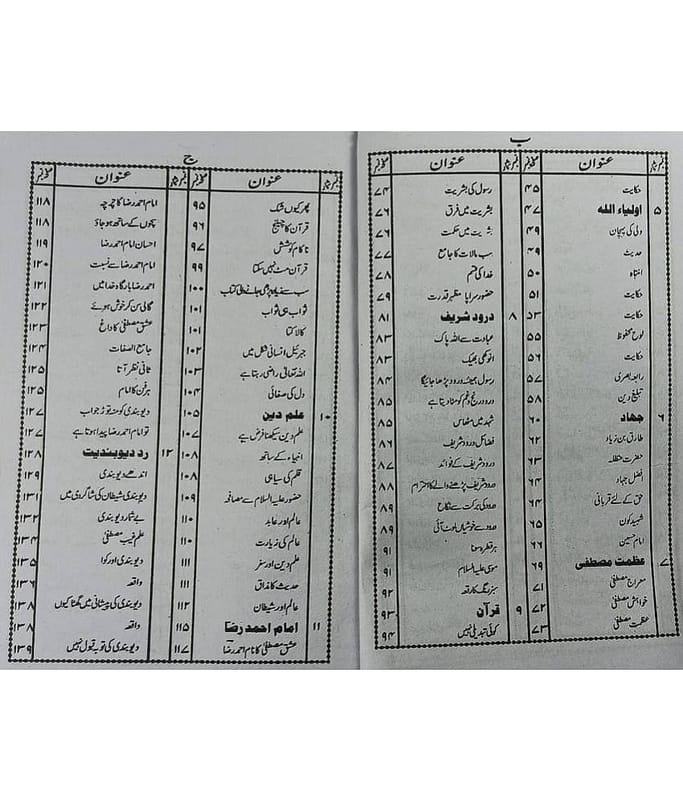 ب
نمبر شمار عنوان صفحہ نمبر نمبر شمار عنوان صفحہ نمبر
حکایت ۴۵
۵ اولیاء اللہ ۴۷
ولی کی پہچان ۴۹
حدیث ۴۹
انتباہ ۵۰
حکایت ۵۱
حکایت ۵۳
لوح محفوظ ۵۵
حکایت ۵۶
رابعہ بصری ۵۷
تبلیغ دین ۵۸
۶ جہاد ۶۰
طارق بن زیاد ۶۲
حضرت حنظلہ ۶۳
افضل جہاد ۶۴
حق کے لئے قربانی ۶۴
شہید کون ۶۵
امام حسین ۶۶
۷ عظمت مصطفی ۶۹
معراج مصطفیٰ ۷۱
خواہش مصطفیٰ ۷۲
عظمت مصطفیٰ ۷۳
رسول کی بشریت ۷۴
بشریت میں فرق ۷۶
بشریت میں حکمت ۷۶
سب کمالات کا جامع ۷۷
خدا کی قسم ۷۸
حضور سراپا مظہر قدرت ۷۹
۸ درود شریف ۸۱
عبادت سے اللہ پاک ۸۳
انوکھی بھیک ۸۳
رسول بھیجتے درود پڑھا جائیگا ۸۴
درود رنج و غم کو مٹا دیتا ہے ۸۵
شہد میں مٹھاس ۸۵
فضائل درود شریف ۸۶
درود شریف کے فوائد ۸۷
درود شریف پڑھنے والے کا احترام ۸۸
درود کی برکت سے نکاح ۸۹
درود سے خوشیاں لوٹ آئی ۸۹
ہر قطرہ سنا ۹۱
موسیٰ علیہ السلام ۹۱
سبز رنگ کا رقعہ ۹۲
۹ قرآن ۹۳
کوئی تبدیلی نہیں ۹۴
ج
نمبر شمار عنوان صفحہ نمبر نمبر شمار عنوان صفحہ نمبر
پھر کیوں شک ۹۵
قرآن کا چیلنج ۹۶
ناکام کوشش ۹۷
قرآن مٹ نہیں سکتا ۹۹
سب سے زیادہ پڑھی جانے والی کتاب ۱۰۰
ثواب ہی ثواب ۱۰۱
کالا کتا ۱۰۱
جبرئیل انسانی شکل میں ۱۰۲
اللہ تعالیٰ راضی رہتا ہے ۱۰۳
دل کی صفائی ۱۰۴
۱۰ علم دین ۱۰۵
علم دین سیکھنا فرض ہے ۱۰۷
انبیاء کے ساتھ ۱۰۸
قلم کی سیاہی ۱۰۸
حضور علیہ السلام سے مصافحہ ۱۰۹
عالم اور عابد ۱۱۰
عالم کی زیارت ۱۱۰
علم دین اور سفر ۱۱۱
حدیث کا مذاق ۱۱۱
عالم اور شیطان ۱۱۲
۱۱ امام احمد رضا ۱۱۵
عشق مصطفیٰ کا نام احمد رضا ۱۱۷
امام احمد رضا کا چرچہ ۱۱۸
بچوں کے ساتھ ہو جاؤ ۱۱۸
احسان امام احمد رضا ۱۱۹
امام احمد رضا سے نسبت ۱۲۰
احمد رضا بارگاہ خدا میں ۱۲۱
گالی سن کر خوش ہوئے ۱۲۲
عشق مصطفیٰ کا داغ ۱۲۳
جامع الصفات ۱۲۴
ثانی نظر آتا ۱۲۵
ہر فن کا امام ۱۲۵
دیوبندی کو منہ توڑ جواب ۱۲۷
تو امام احمد رضا پیدا ہوتا ہے ۱۲۷
۱۲ رد دیوبندیت ۱۲۸
اندھے دیوبندی ۱۲۹
دیوبندی شیطان کی شاگردی میں ۱۳۱
بے شمار دیوبندی ۱۳۲
علم غیب مصطفیٰ ۱۳۴
دیوبندی اور کوا ۱۳۵
واقعہ ۱۳۶
دیوبندی کی پیشانی میں گھٹا کیوں ۱۳۸
واقعہ ۱۳۸
دیوبندی کی توبہ قبول نہیں ۱۳۹